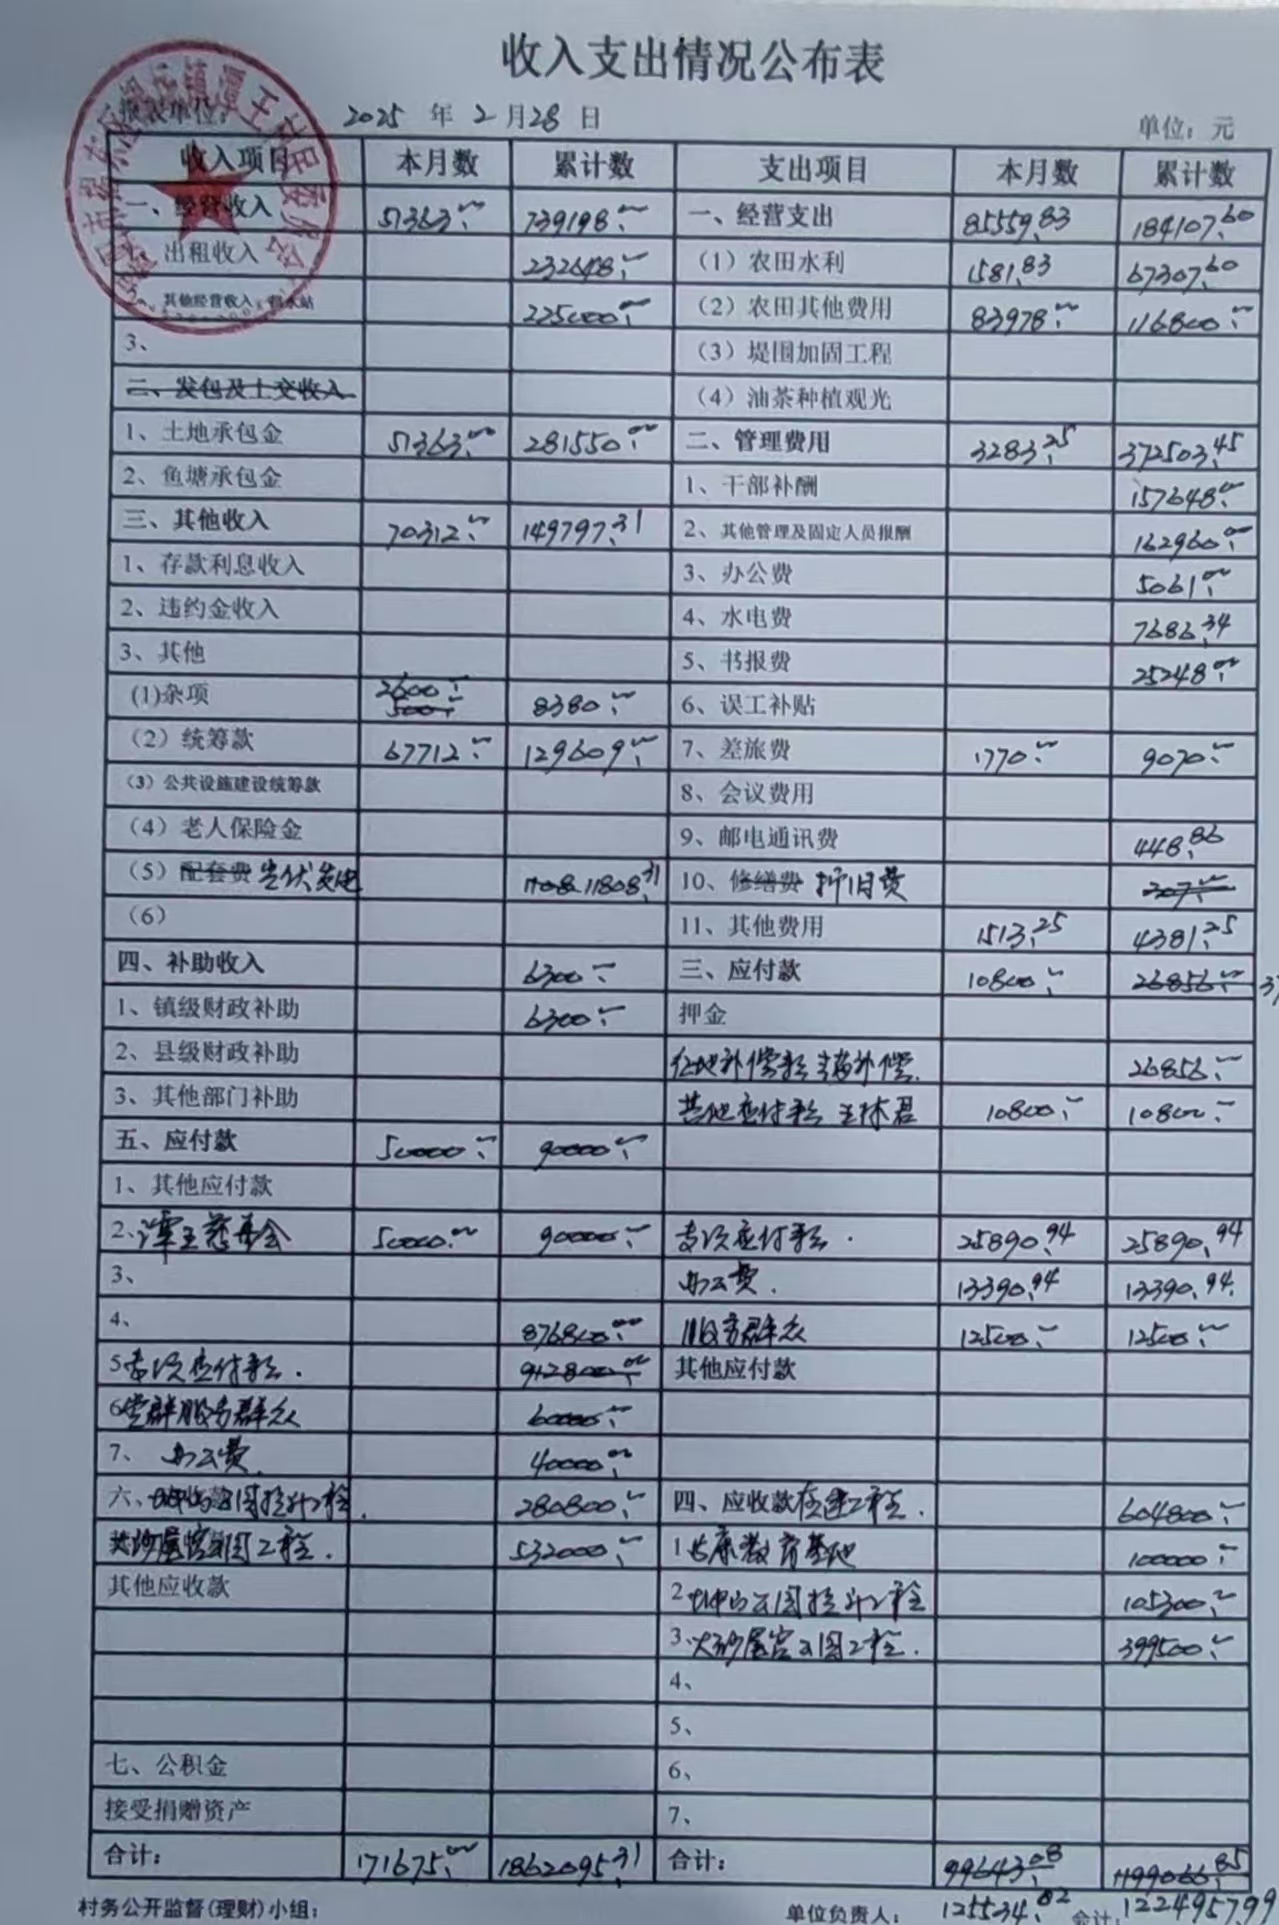 收入支出情况公布表
报表单位： 2025 年 2 月 28 日 单位：元
收入项目 本月数 累计数 支出项目 本月数 累计数
一、经营收入 51363.00 739198.00 一、经营支出 85559.83 184107.60
1、出租收入 232648.00 （1）农田水利 1581.83 67307.60
2、其他经营收入 225000.00 （2）农田其他费用 83978.00 116800.00
3、 （3）堤围加固工程
二、发包及上交收入 （4）油茶种植观光
1、土地承包金 51363.00 281550.00 二、管理费用 3283.25 372503.45
2、鱼塘承包金 1、干部补酬 157648.00
三、其他收入 70312.00 149797.31 2、其他管理及固定人员报酬 162960.00
1、存款利息收入 3、办公费 5061.00
2、违约金收入 4、水电费 7686.34
3、其他 5、书报费 25248.00
(1)杂项 2600.00 500.00 8380.00 6、误工补贴
（2）统筹款 67712.00 129609.00 7、差旅费 1770.00 9070.00
（3）公共设施建设统筹款 8、会议费用
（4）老人保险金 9、邮电通讯费 448.86
（5）配套费 光伏发电 11808.31 10、修缮费 折旧费 207.00
（6） 11、其他费用 1513.25 4381.25
四、补助收入 6300.00 三、应付款 10800.00 26856.00
1、镇级财政补助 6300.00 押金
2、县级财政补助 征地补偿款 26856.00
3、其他部门补助 其他应付款 10800.00 10800.00
五、应付款 50000.00 90000.00
1、其他应付款
2、潭王慈善会 50000.00 90000.00 专项应付款 25890.94 25890.94
3、 办公费 13390.94 13390.94
4、 876800.00 服务群众 12500.00 12500.00
5专项应付款 912800.00 其他应付款
6党群服务群众 60000.00
7、办公费 40000.00
六、公园提升工程 280800.00 四、应收款在建工程 604800.00
大沙尾宫公园工程 532000.00 1 教育基地 100000.00
其他应收款 2 公园提升工程 105300.00
3、大沙尾宫公园工程 399500.00
4、
5、
七、公积金 6、
接受捐赠资产 7、
合计： 171675.00 1862095.31 合计： 99643.08 1199066.85
村务公开监督(理财)小组： 单位负责人： 125534.82 会计： 1224957.99